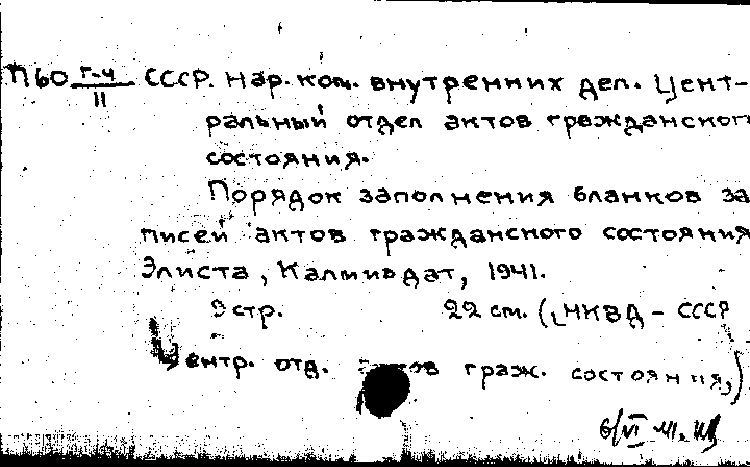 П60 Г-4/11 СССР. Нар. ком. внутренних дел. Цент-
ральный отдел актов гражданского
состояния.
Порядок заполнения бланков за
писей актов гражданского состояния
Элиста, Калмиздат, 1941.
9 стр. 22 см. (НКВД - СССР
Центр. отд. актов граж. состояния,)
6/VI